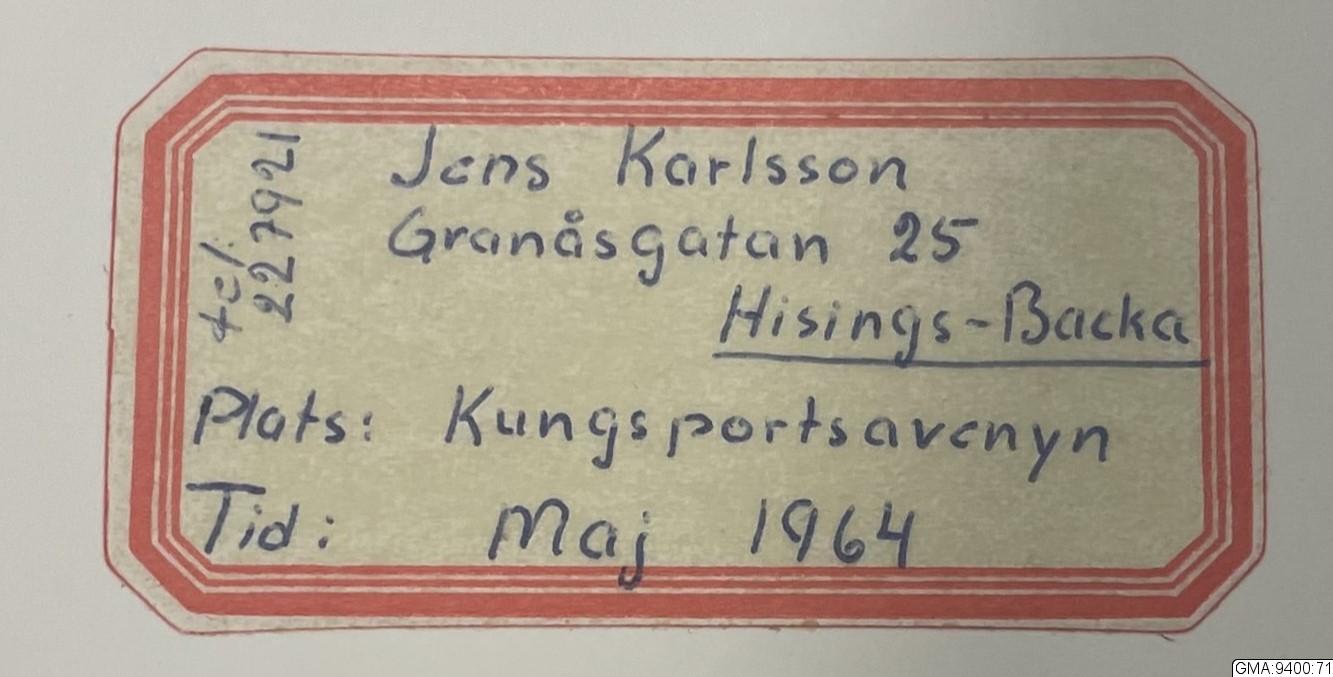 Jens Karlsson
Granåsgatan 25
Hisings-Backa
tel.
227921
Plats: Kungsportsavenyn
Tid: Maj 1964
GMA:9400:71